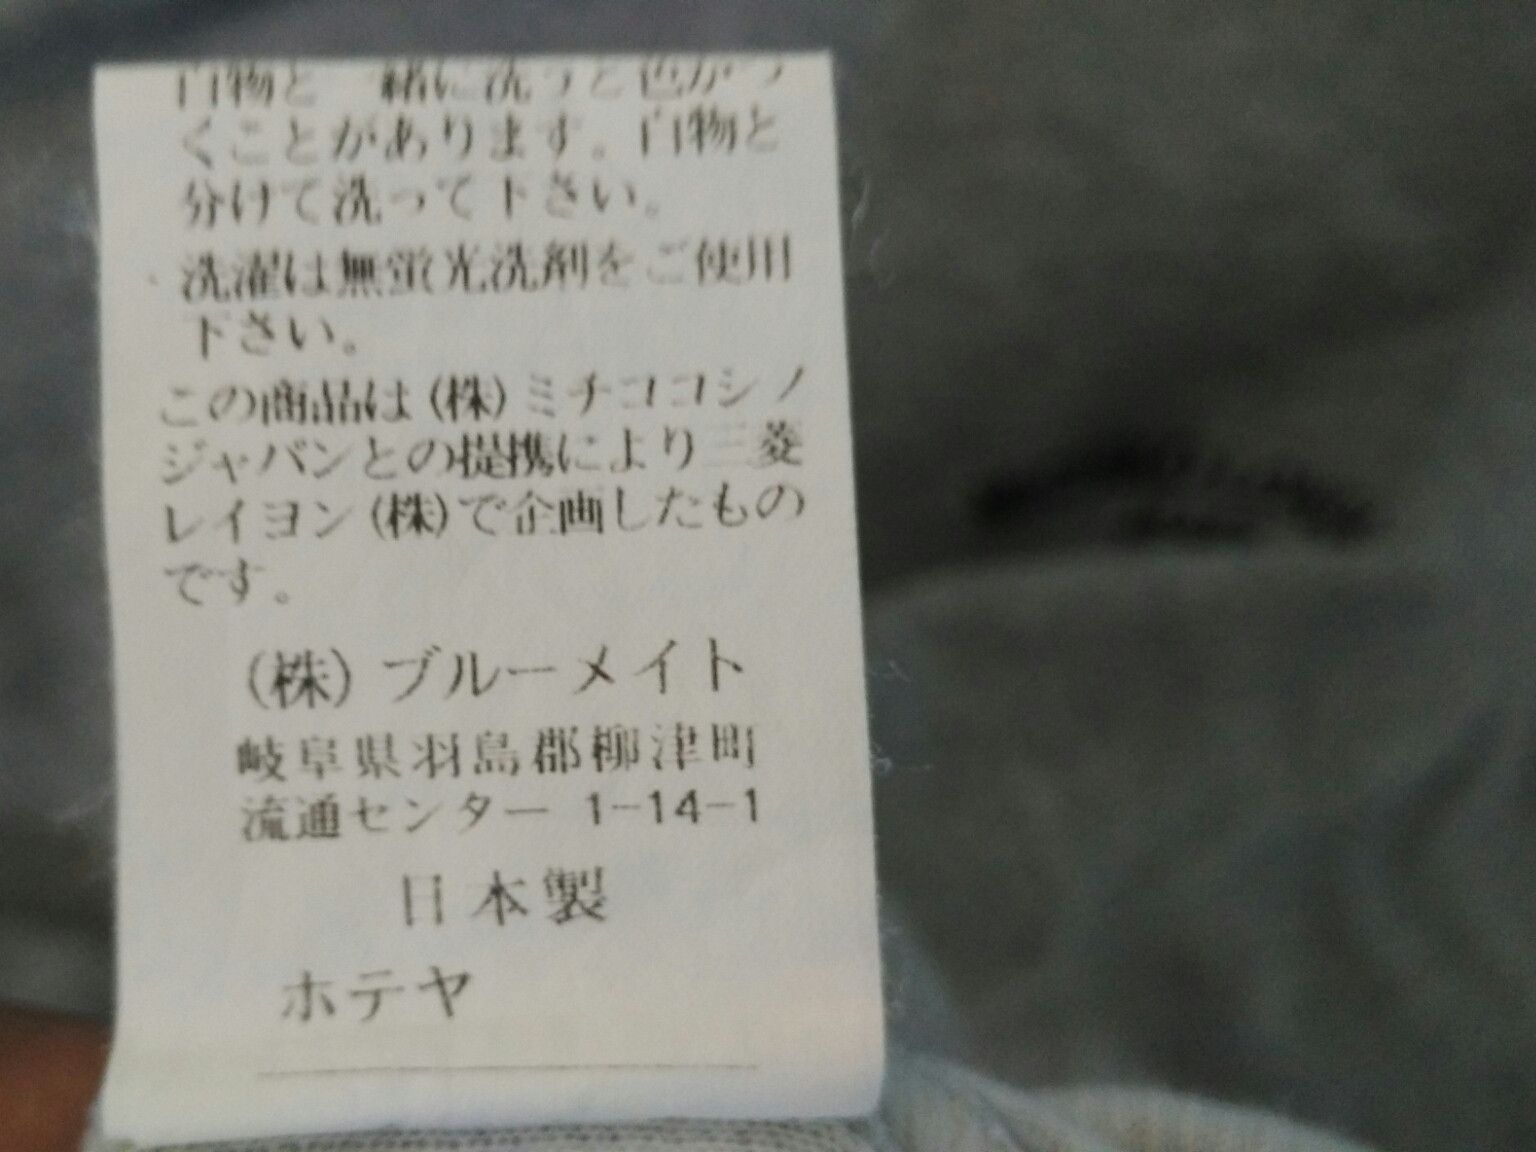 白物と一緒に洗うと色がつ
くことがあります。白物と
分けて洗って下さい。
・洗濯は無蛍光洗剤をご使用
下さい。
この商品は(株)ミチココシノ
ジャパンとの提携により三菱
レイヨン(株)で企画したもの
です。
(株)ブルーメイト
岐阜県羽島郡柳津町
流通センター 1-14-1
日本製
ホテヤ